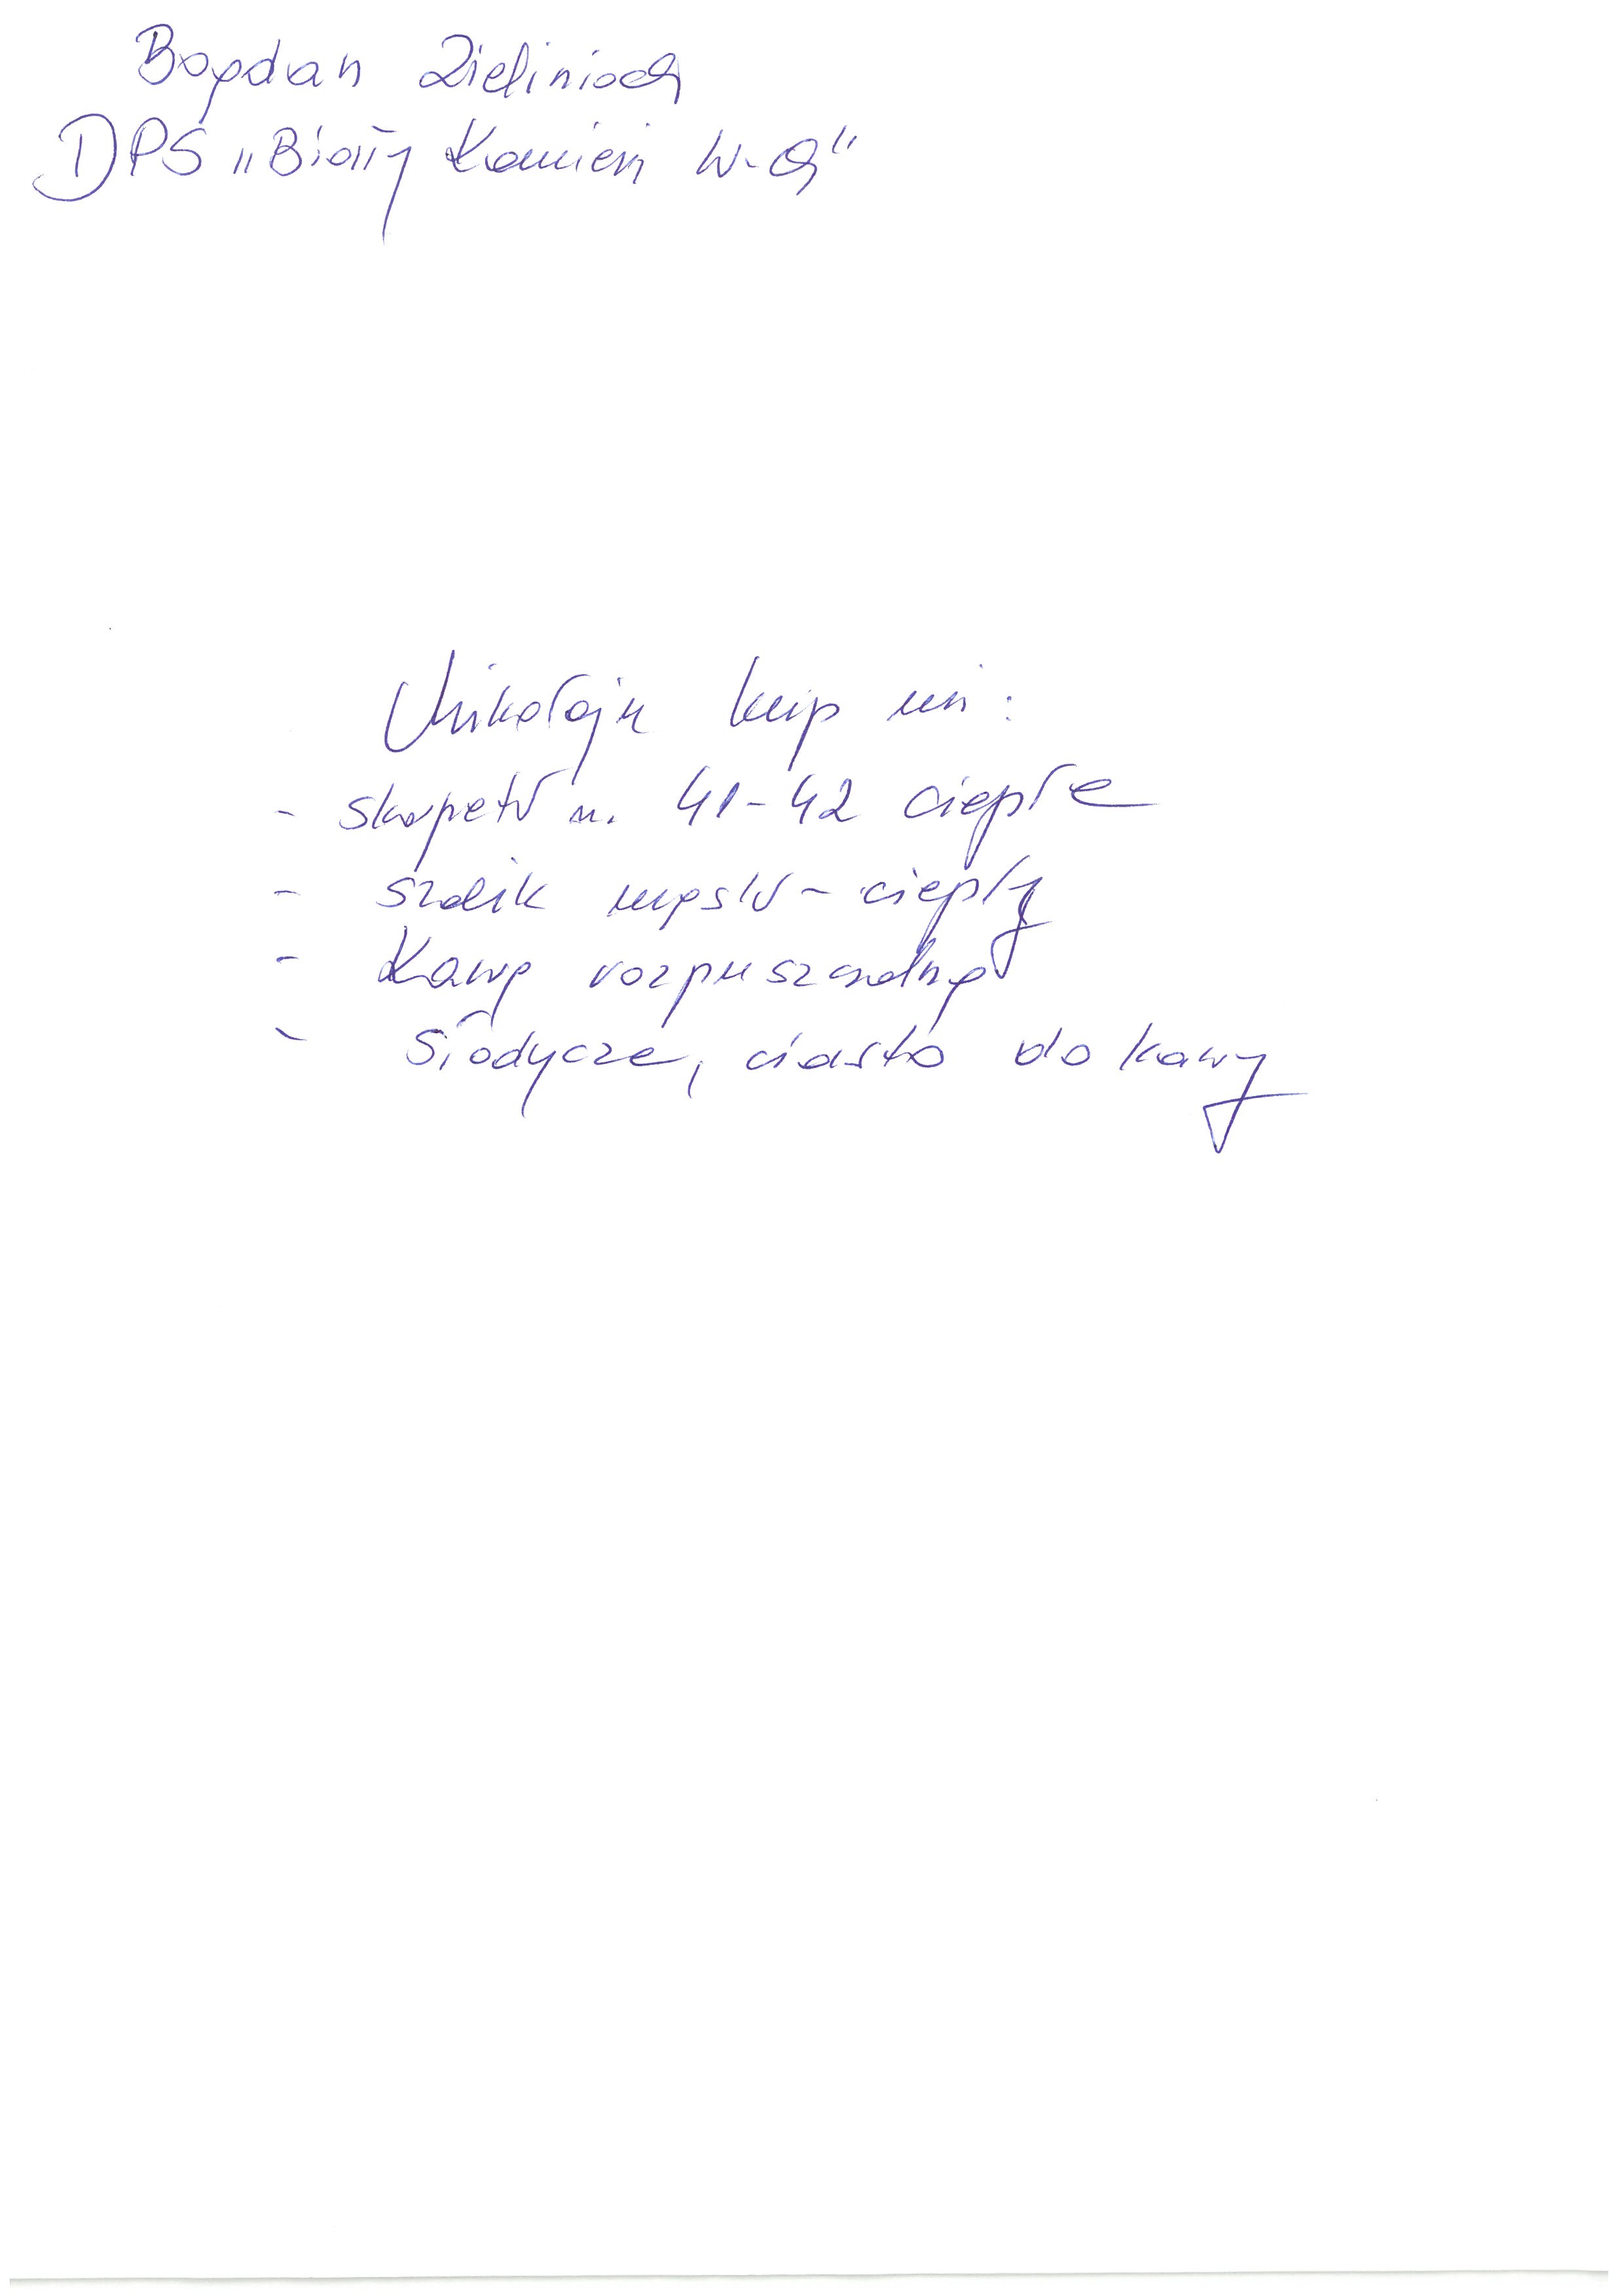 Bogdan Zieliniach
DPS „Biały Kamień W-ch"
Mikołaju kup mi:
- skarpety n. 41-42 ciepłe
- szalik męski - ciepły
- Kawę rozpuszczalną
- Słodycze, ciasto do kawy